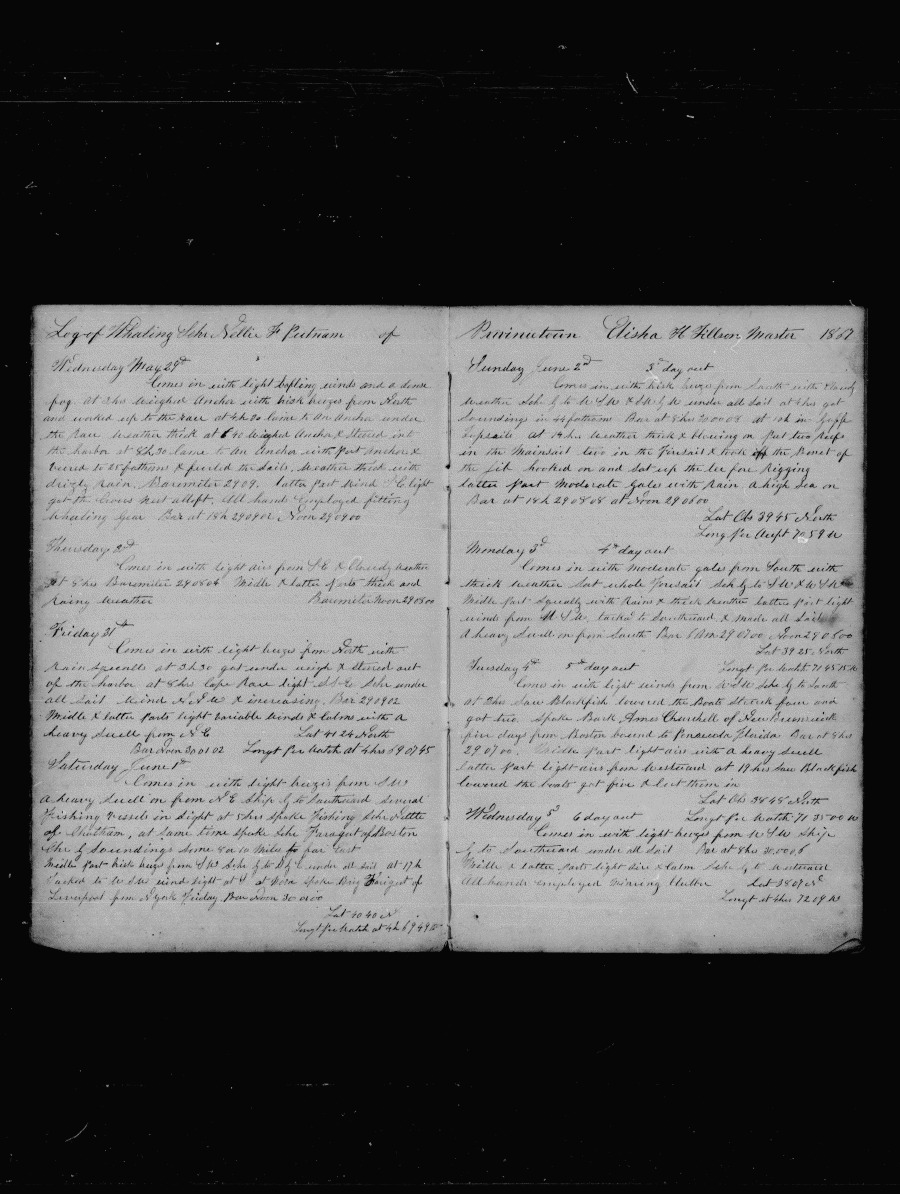 Log of Whaling Schr Nettie F Putnam of
Wednesday May 29th
Comes in with light baffling winds and a dense
fog at 2hs Weighed Anchor with brisk breezes from North
and worked up to the race at 4h 30 Came to An Anchor under
the Race Weather thick at 6 40 Weighed Anchor & Steered into
the harbor at 8h 30 Came to An Anchor with Port Anchor &
veered to 25 fathoms & furled the Sails. Weather thick with
drizly Rain. Barometer 29 09. latter Part Wind S E light
got the Crows Nest alloft. All hands Employed fitting
Whaling Gear Bar at 18h 29 09 02 Noon 29 09 00
Thursday
Comes in with light airs from S E & Cloudy Weather
At 8hrs Barometer 29 08 04 Middle & latter parts thick and
Rainy Weather Barometer Noon 29 08 00
Friday 31th
Comes in with light breezes from North with
Rain Squalls at 3h 30 got under weigh & Steered out
of the harbor at 8hrs Cape Race light S S E Schr under
all Sail Wind N N W & increasing. Bar 29 09 02
Middle & latter Parts light variable Winds & Calms with a
heavy Swell from N E Lat 41 24 North
Bar Noon 30 01 02 Longt Per Watch at 4hrs 69 07 45
Saturday June 1st
Comes in with light breezes from S W
A heavy Swell on from N E Ship by to Southward Several
Fishing Vessels in Sight at 5hrs spoke Fishing Schr Nettle
of Chatham, at same time spoke Schr Faragut of Boston
Soundings Some 8 or 10 Mile to far East
Middle Part brisk breezes from S W Schr by to under all sail at 17h
Tacked to W S W wind light at Noon spoke Brig of
Liverpool from N York Friday Bar Noon 30 00 00
Lat 40 40 N
Longt Per Watch at 4h 69 49 W
Provincetown Elisha H Tillson Master 1867
Sunday June 2nd 3d day out
Comes in with brisk breezes from South with Cloudy
Weather Schr by to W S W & S W by W under all Sail at 6hrs got
Soundings in 44 fathoms Bar at 8hrs 30 00 08 at 10h in Gaff
Topsails At 14hrs Weather thick & blowing on Put two Reefs
in the Mainsail two in the Foresail & took off the Bonet of
the Jib hooked on and sat up the lee fore Rigging
latter Part Moderate Gales with Rain A high Sea on
Bar at 18h 29 08 08 at Noon 29 06 00
Lat Obs 39 45 North
Long Per Acpt 70 59 W
Monday 3d 4th day out
Comes in with Moderate gales from South with
thick Weather Sat whole Foresail Schr by to S W & W S W
Middle Part Squally with Rains & thick Weather latter Part light
winds from W S W, tacked to Southward & made all Sail
A heavy Swell on from South Bar 29 07 00 Noon 29 08 00
Lat 39 25 North
Tuesday 4th 5th day out Longt Per Watch 71 45 15 W
Comes in with light winds from W S W Schr by to South
at 2hrs Saw Blackfish lowered the Boats Struck four and
got two Spoke Bark Ames Churchell of New Brunswick
five days from Boston bound to Pensacola Florida Bar at 8hrs
29 07 00. Middle Part light airs with a heavy Swell
latter Part light airs from Westward at 19hrs Saw Blackfish
lowered the boats got five & Cut them in
Lat Obs 38 48 North
Wednesday 5 6 day out Longt Per Watch 71 35 00 W
Comes in with light breezes from W S W Ship
by to Southward under all Sail Bar at 8hrs 30 00 06
Middle & latter Parts light Airs & Calm Schr by to Westward
All hands employed Lat 38 07 N
Longt at 4hrs 72 09 W